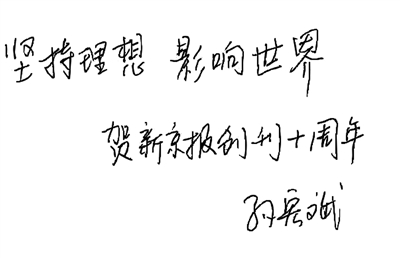 坚持理想 影响世界
贺新京报创刊十周年
孙宏斌